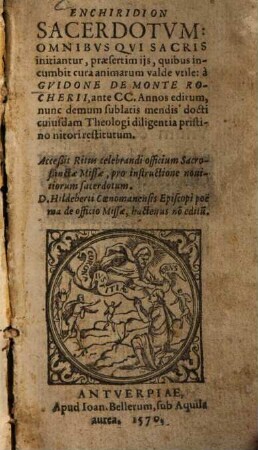 ENCHIRIDION
SACERDOTVM:
OMNIBVS QVI SACRIS
initiantur, præsertim ijs, quibus in-
cumbit cura animarum valde vtile: à
GVIDONE DE MONTE RO-
CHERII, ante CC. Annos editum,
nunc demum sublatis mendis docti
cuiusdam Theologi diligentia pristi-
no nitori restitutum.
Accessit Ritus celebrandi officium Sacro-
sanctæ Missæ, pro instructione noui-
tiorum sacerdotum.
D. Hildeberti Cœnomanensis Episcopi poë-
ma de officio Missæ, hactenus nō editū.
ANTVERPIAE,
Apud Ioan. Bellerum, sub Aquila
aurea. 1570.